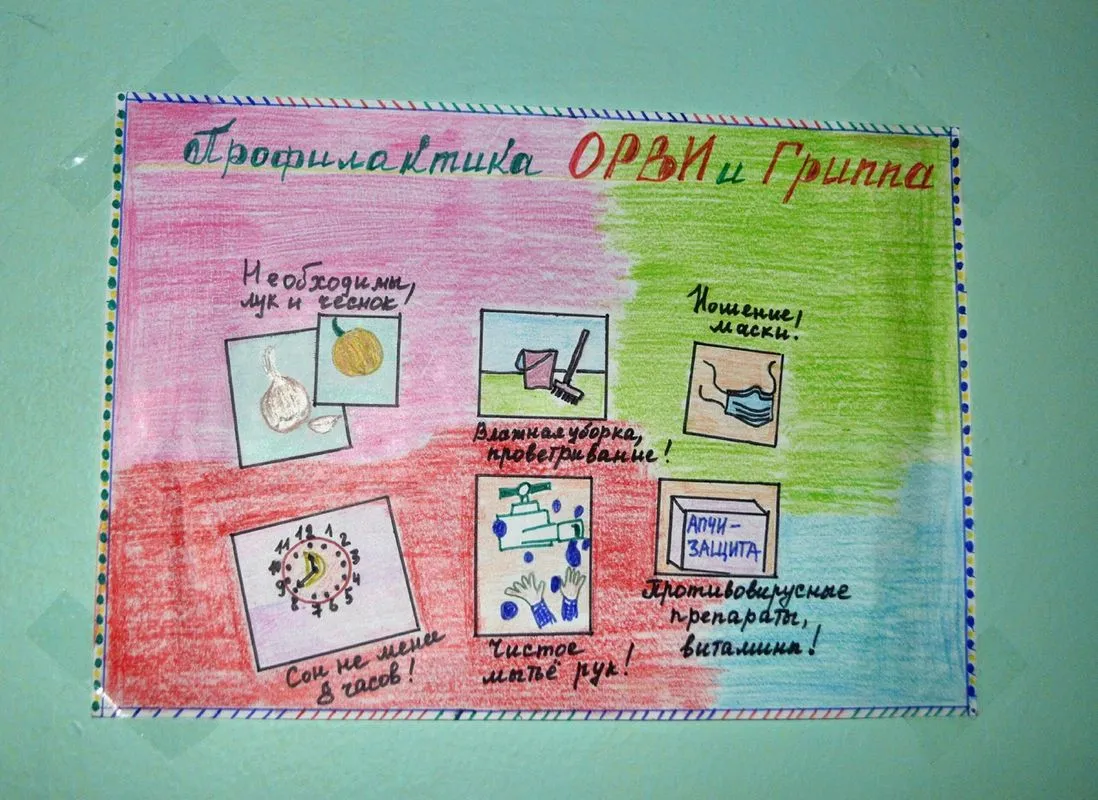 Профилактика ОРВИ и Гриппа
Необходимы,
лук и чеснок!
Влажная уборка,
проветривание!
Ношение
маски!
12 1 2 3 4 5 6 7 8 9 10 11
Сон не мене
8 часов!
Чистое
мытьё рук!
АПЧИ-
ЗАЩИТА
Противовирусные
препараты,
витамины!